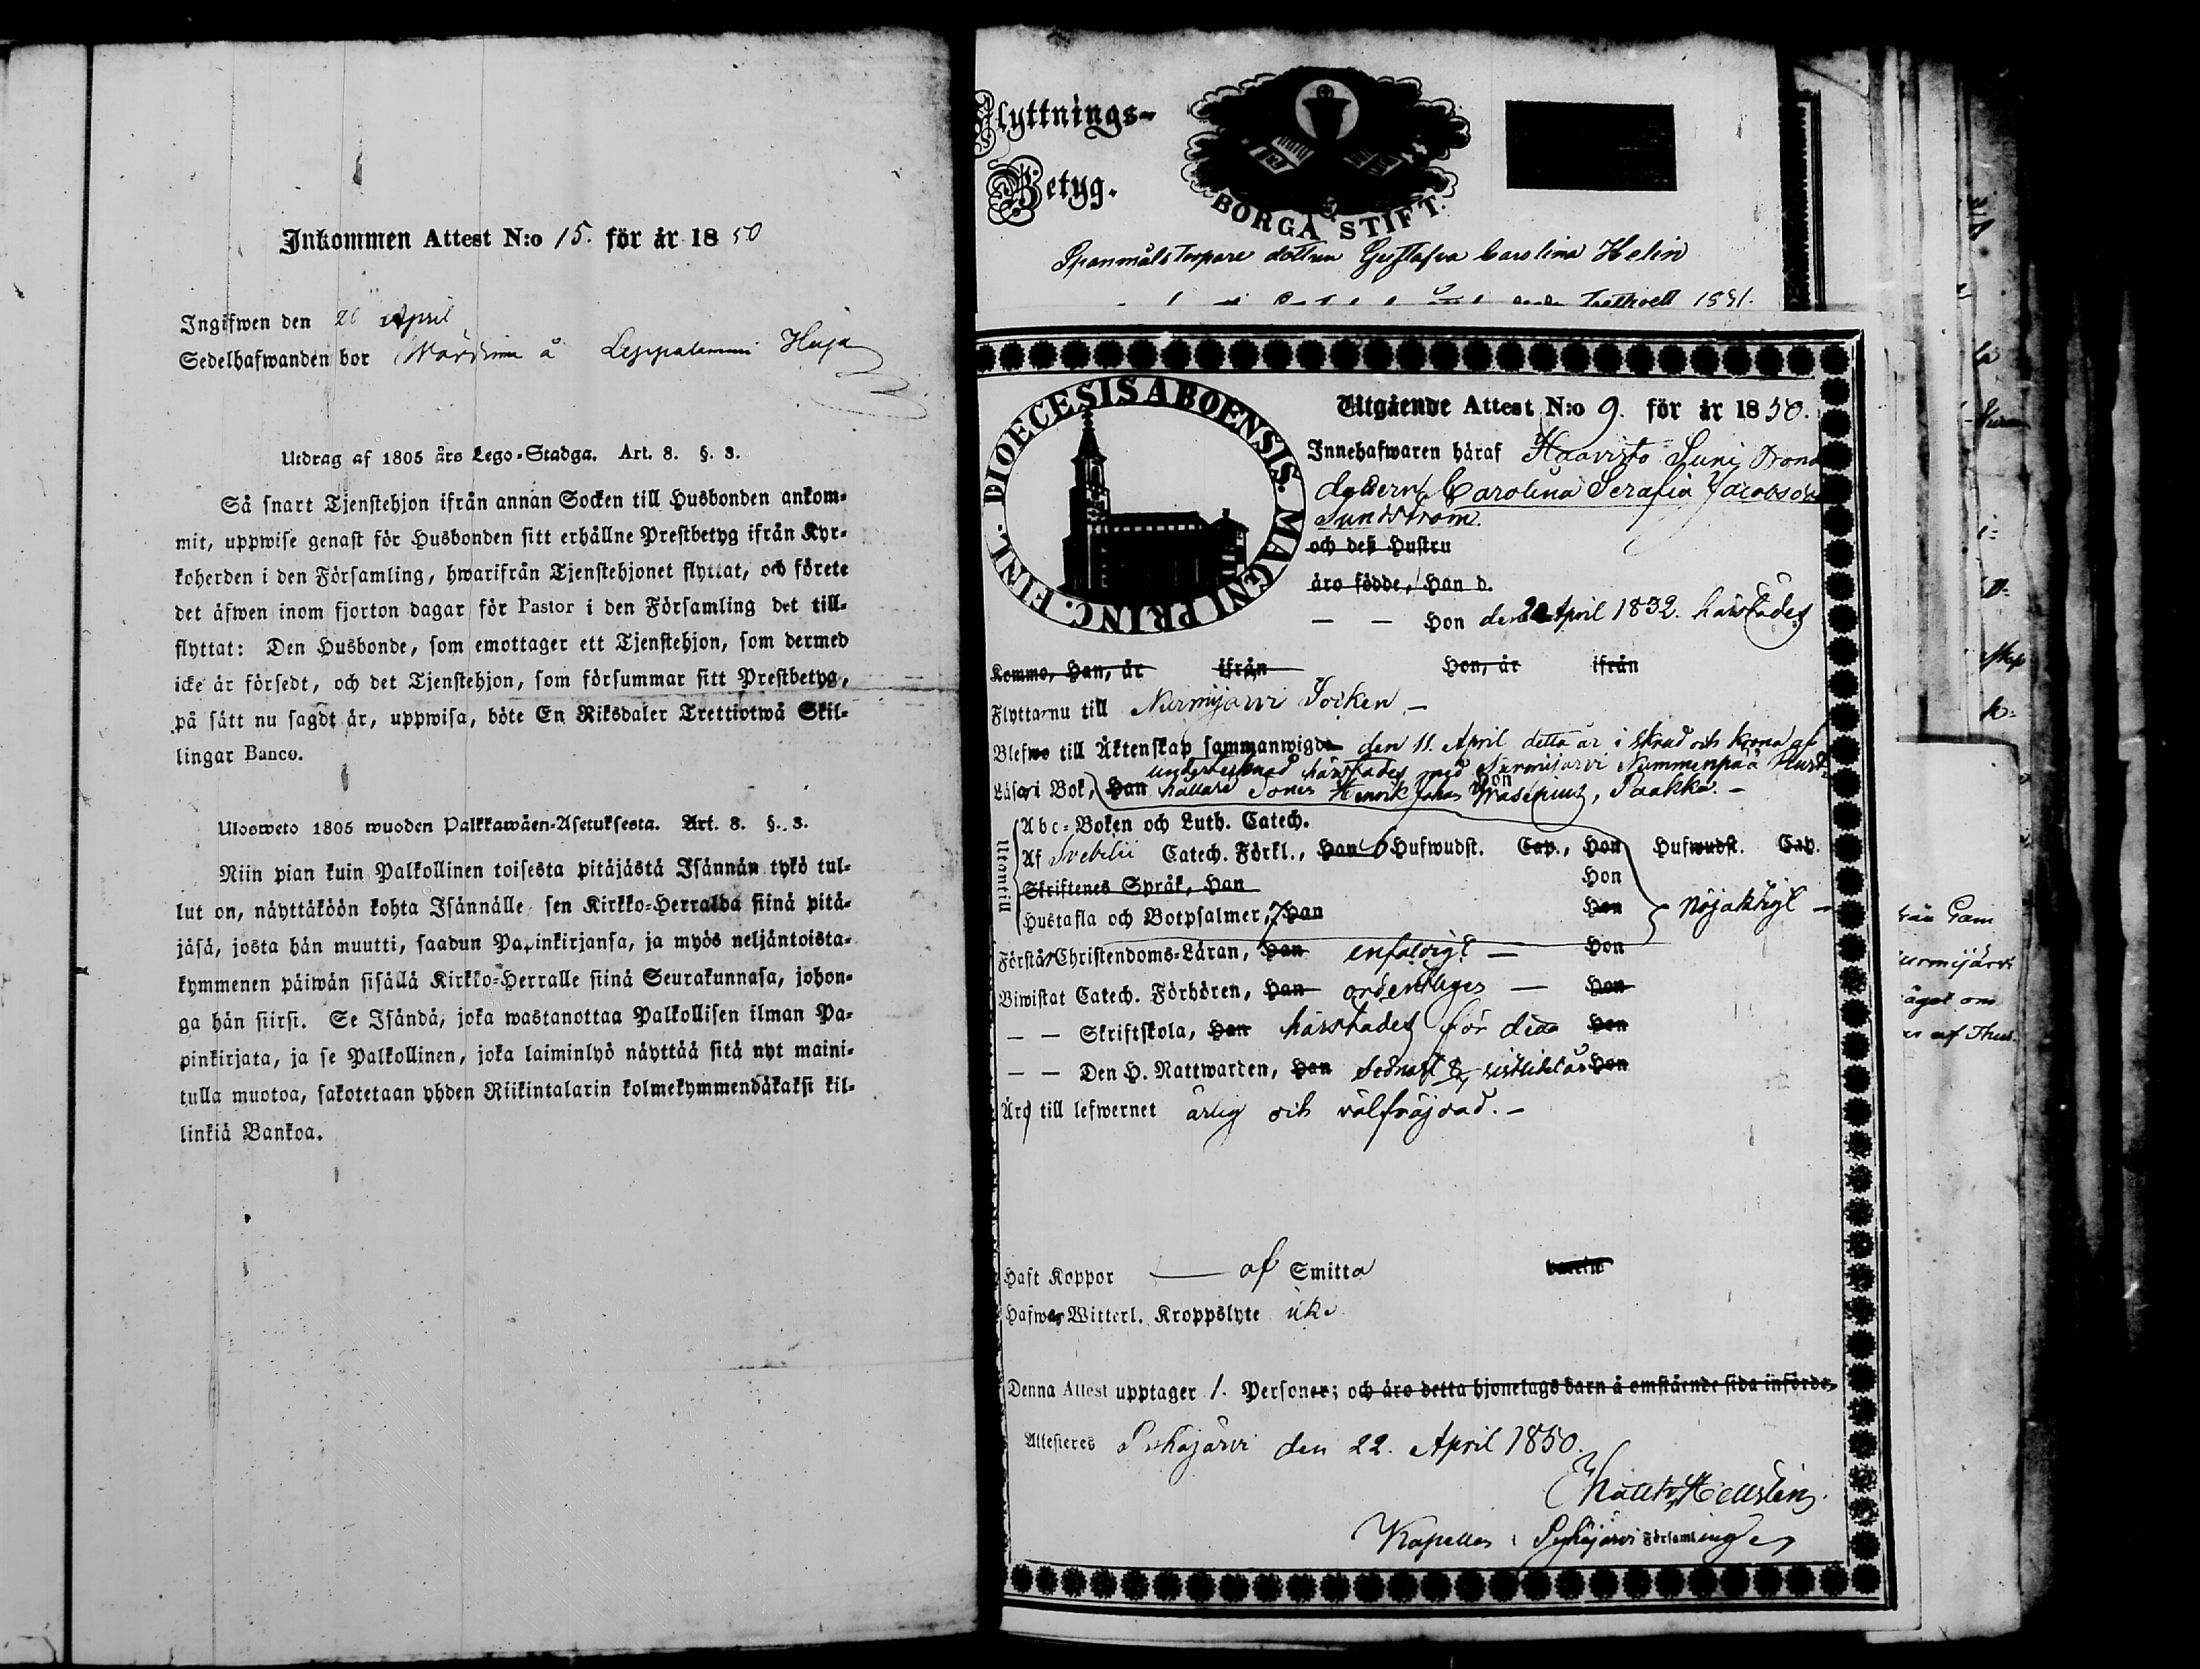 Inkommen Attest N:o 15. för år 1850
Ingifwen den 26 April
Sedelhafwanden bor å Leppalammi Huja
Utdrag af 1805 års Lego-Stadga. Art. 8. §. 3.
Så snart Tjenstehjon ifrån annan Socken till Husbonden ankom-
mit, uppwise genast för Husbonden sitt erhållne Prestbetyg ifrån Kyr-
koherden i den Församling, hwarifrån Tjenstehjonet flyttat, och förete
det äfwen inom fjorton dagar för Pastor i den Församling det till-
flyttat: Den Husbonde, som emottager ett Tjenstehjon, som dermed
icke är försedt, och det Tjenstehjon, som försummar sitt Prestbetyg,
på sätt nu sagdt är, uppwisa, böte En Riksdaler Trettiotwå Skil-
lingar Banco.
Ulosweto 1805 wuoden Palkkawäen-Asetuksesta. Art. 8. §. 3.
Niin pian kuin Palkollinen toisesta pitäjästä Isännän tykö tul-
lut on, näyttäköön kohta Isännälle sen Kirkko-Herralda siinä pitä-
jäsä, josta hän muutti, saadun Papinkirjansa, ja myös neljäntoista-
kymmenen päiwän sisällä Kirkko-Herralle siinä Seurakunnasa, johon-
ga hän siirsi. Se Isändä, joka wastanottaa Palkollisen ilman Pa-
pinkirjata, ja se Palkollinen, joka laiminlyö näyttää sitä nyt maini-
tulla muotoa, sakotetaan yhden Riikintalarin kolmekymmendäkaksi kil-
linkiä Bankoa.
Flyttnings-
Betyg.
BORGÅ STIFT.
Spanmåls torpare dottren Gustafva Carolina Helin
1831.
DIOECESIS ABOENSIS. MAGNI PRINC. FINL.
Utgående Attest N:o 9. för år 1850.
Innehafwaren häraf Haavisto Suni
Carolina Serafia Jacobsdr
Sundström.
och deß Hustru
äro födde, Han d.
— — Hon den 20 April 1832. härstädes
Komme, Han, är ifrån Hon, år ifrån
Flyttar nu till Nurmijärvi Socken —
Blefwo till Äktenskap sammanwigde den 11. April detta år i skrud och krona af
undertecknad härstädes med Nurmijärvi Nummenpää
Läsa i Bok, Han Hon Henrik Johan Wasenius, Paakka. —
Utantill
Abc-Boken och Luth. Catech.
Af Svebilii Catech. Förkl., Han 6 Hufwudst. Cap., Hon Hufwudst. Cap.
Skriftenes Språk, Han Hon
Hustafla och Botpsalmer, 7 Han Hon nöjaktigt —
Förstår Christendoms-Läran, Han enfaldigt — Hon
Biwistat Catech. Förhören, Han ordentligen — Hon
— — Skriftskola, Han härstädes för detta Hon
— — Den H. Nattwarden, Han sednast Hon
Äro till lefwernet ärlig och välfräjdad. —
Haft Koppor — af Smitta
Hafwa Witterl. Kroppslyte icke
Denna Attest upptager 1. Personer; och äro detta hjonelags barn å omstående sida införde.
Attesteres Pyhäjärvi den 22. April 1850.
Hellstén
Kapellan i Pyhäjärvi Församling
från Gam
Nurmijärvi
äget om